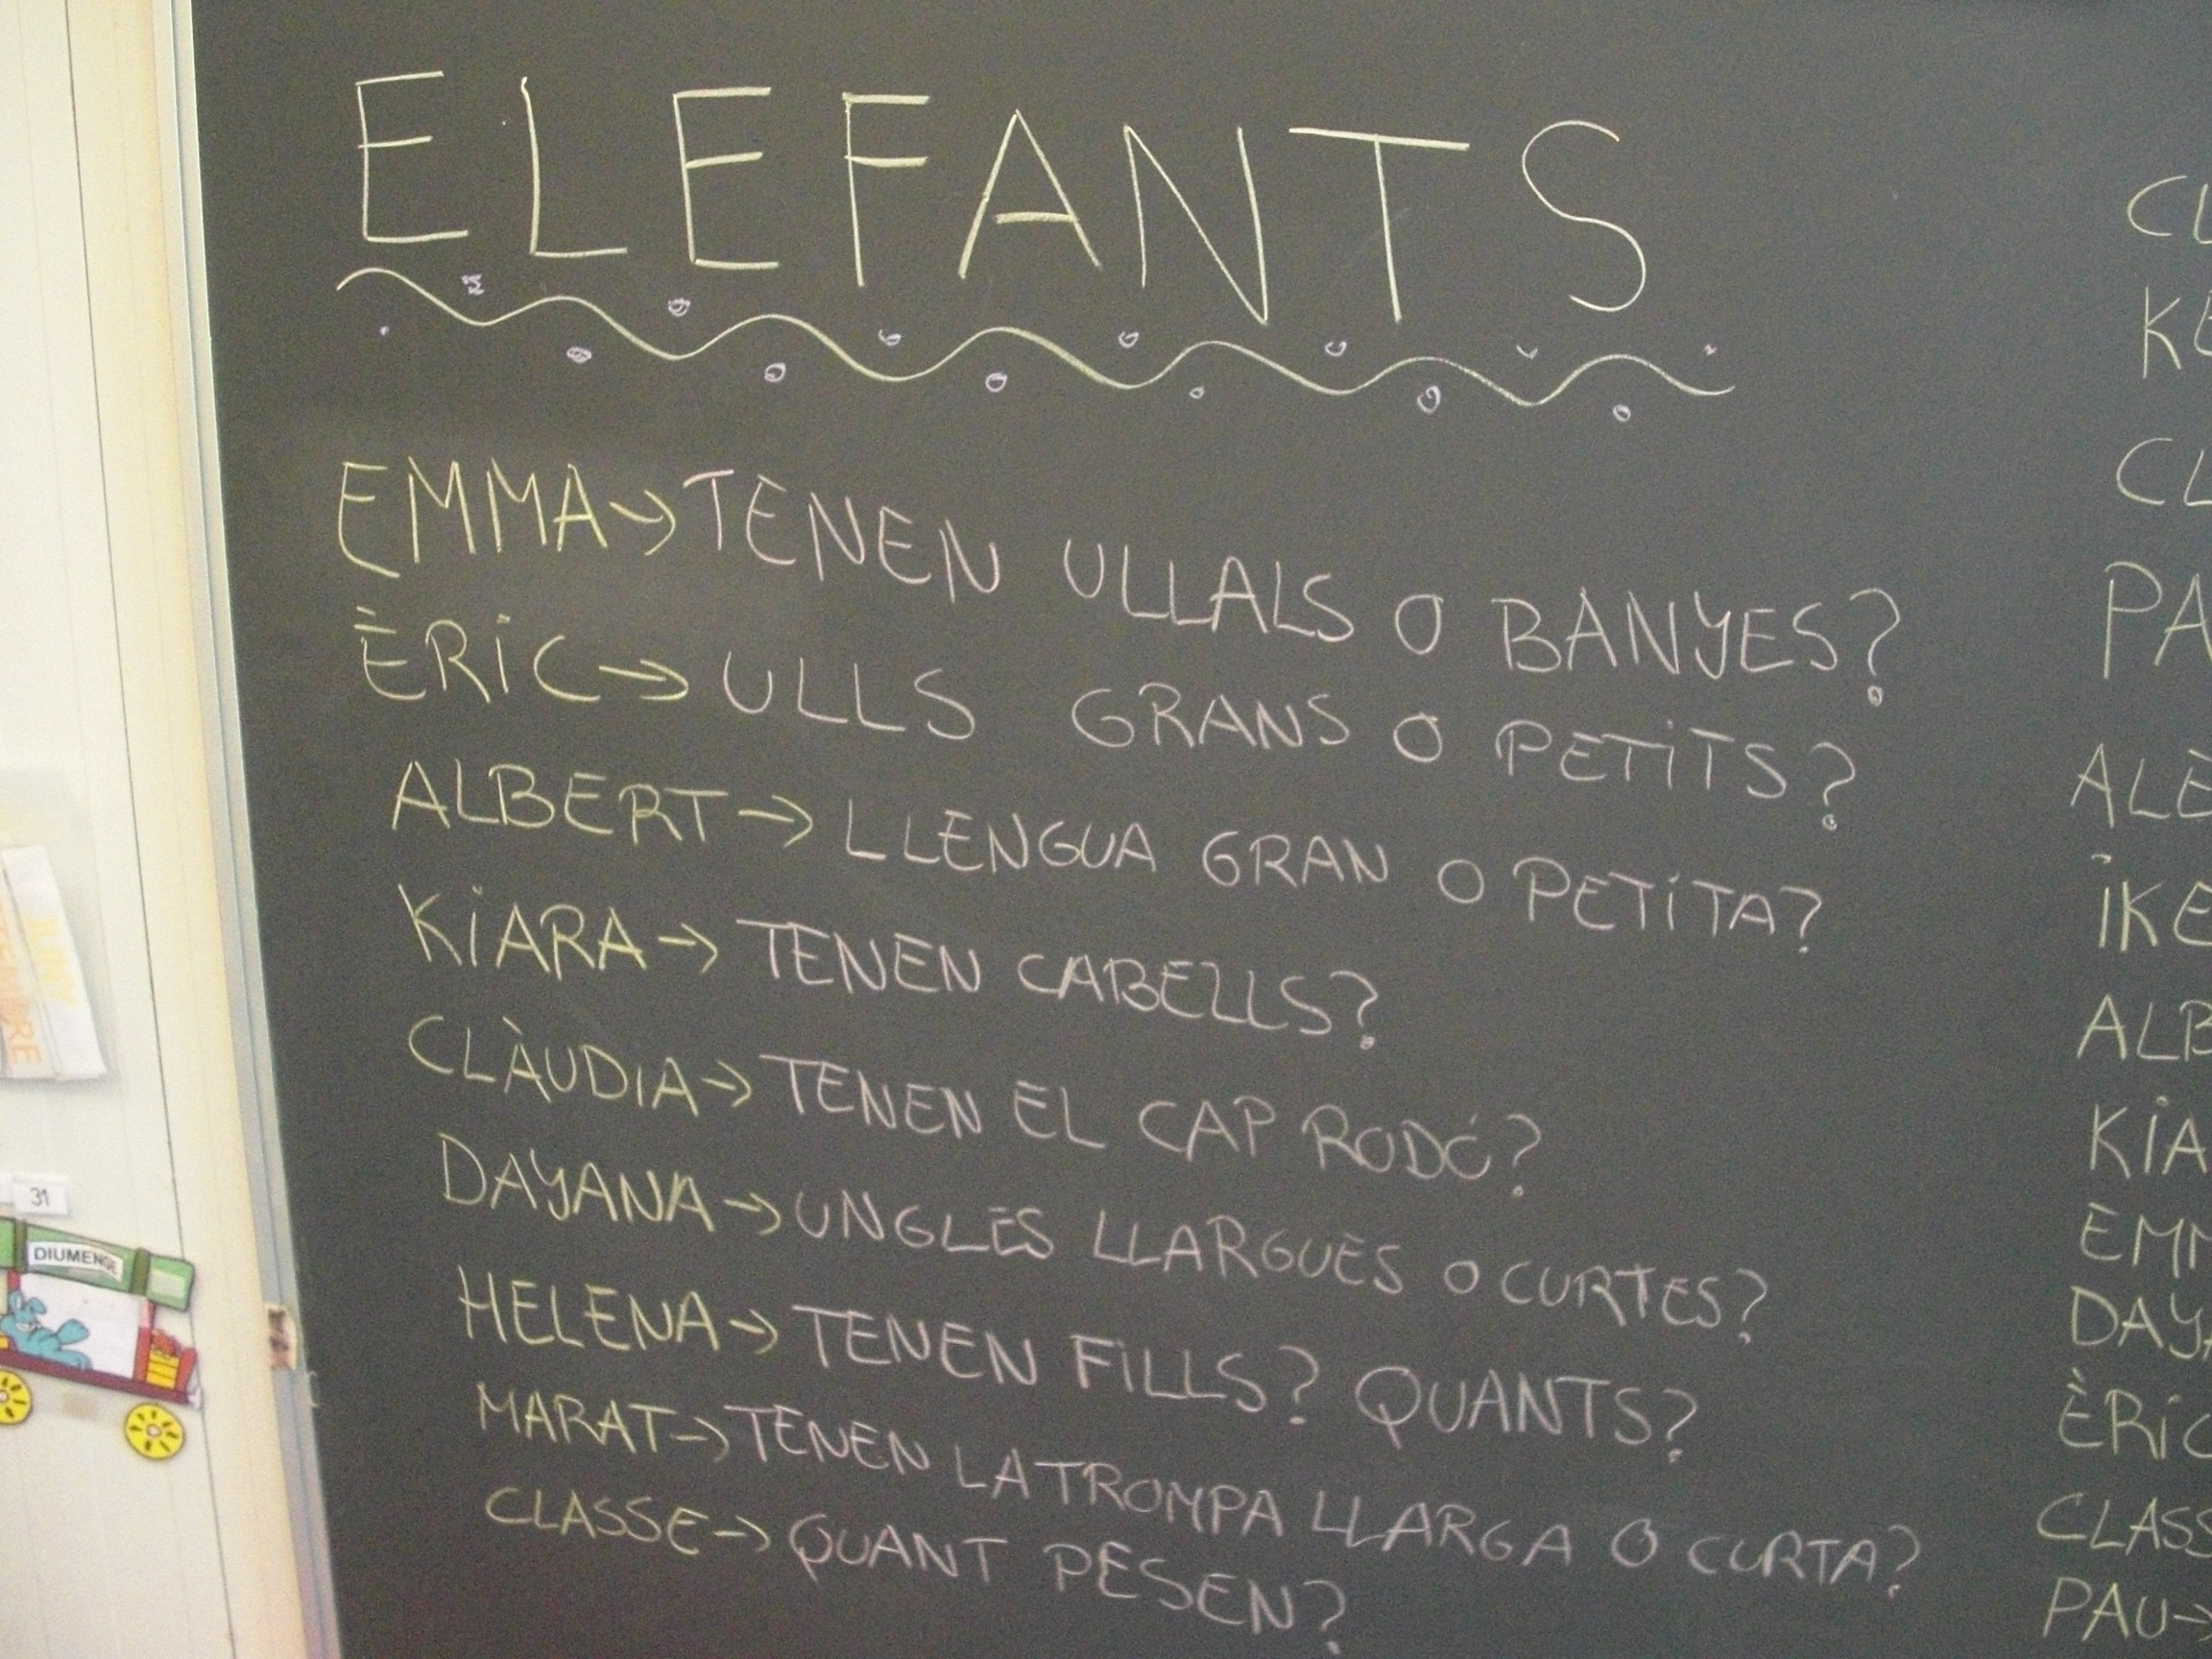 ELEFANTS
EMMA→TENEN ULLALS O BANYES?
ÈRIC→ULLS GRANS O PETITS?
ALBERT→LLENGUA GRAN O PETITA?
KIARA→TENEN CABELLS?
CLÀUDIA→TENEN EL CAP RODÓ?
DAYANA→UNGLES LLARGUES O CURTES?
HELENA→TENEN FILLS? QUANTS?
MARAT→TENEN LA TROMPA LLARGA O CURTA?
CLASSE→QUANT PESEN?
CL
KE
CL
PA
ALÈ
IKE
ALB
KIA
EMM
DAYA
ÈRIC
CLASS
PAU→
31
DIUMENGE